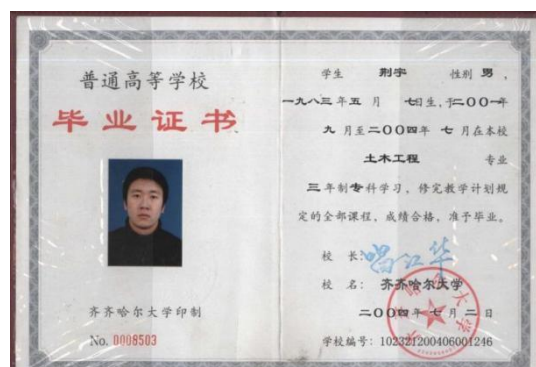 普通高等学校
毕业证书
齐齐哈尔大学印制
No. 0008503
学生 荆宇 性别 男，
一九八三年五月 七日生，于二〇〇一年
九月至二〇〇四年 七月在本校
土木工程 专业
三年制专科学习，修完教学计划规
定的全部课程，成绩合格，准予毕业。
校 长：
校 名： 齐齐哈尔大学
二〇〇四年七月二日
学校编号：102321200406001246